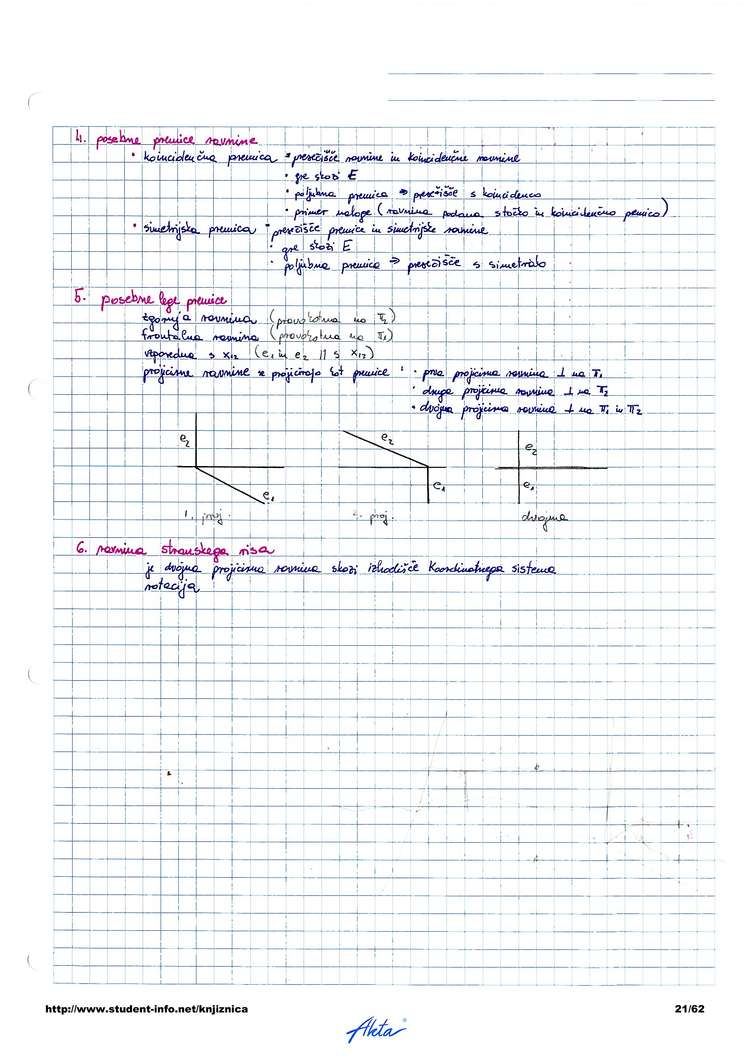 4. posebne premice ravnine
• koincidenčna premica = presečišče ravnine in koincidenčne ravnine
• gre skozi E
• poljubna premica ⇒ presečišče s koincidenco
• primer naloge (ravnina podana s točko in koincidenčno premico)
• simetrijska premica = presečišče premice in simetrijske ravnine
• gre skozi E
• poljubna premica ⇒ presečišče s simetralo
5. posebne lege premice
zgornja ravnina (pravokotna na π2)
frontalna ravnina (pravokotna na π1)
vzporedna s x12 (e1 in e2 || s x12)
projicirne ravnine = projicirajo kot premice : • prva projicirna ravnina ⊥ na π1
• druga projicirna ravnina ⊥ na π2
• dvojna projicirna ravnina ⊥ na π1 in π2
e2 e2 e2
e1 e1 e1
1. proj. proj. dvojna
6. ravnina stranskega risa
je dvojna projicirna ravnina skozi izhodišče koordinatnega sistema
rotacija
http://www.student-info.net/knjiznica 21/62
Akta